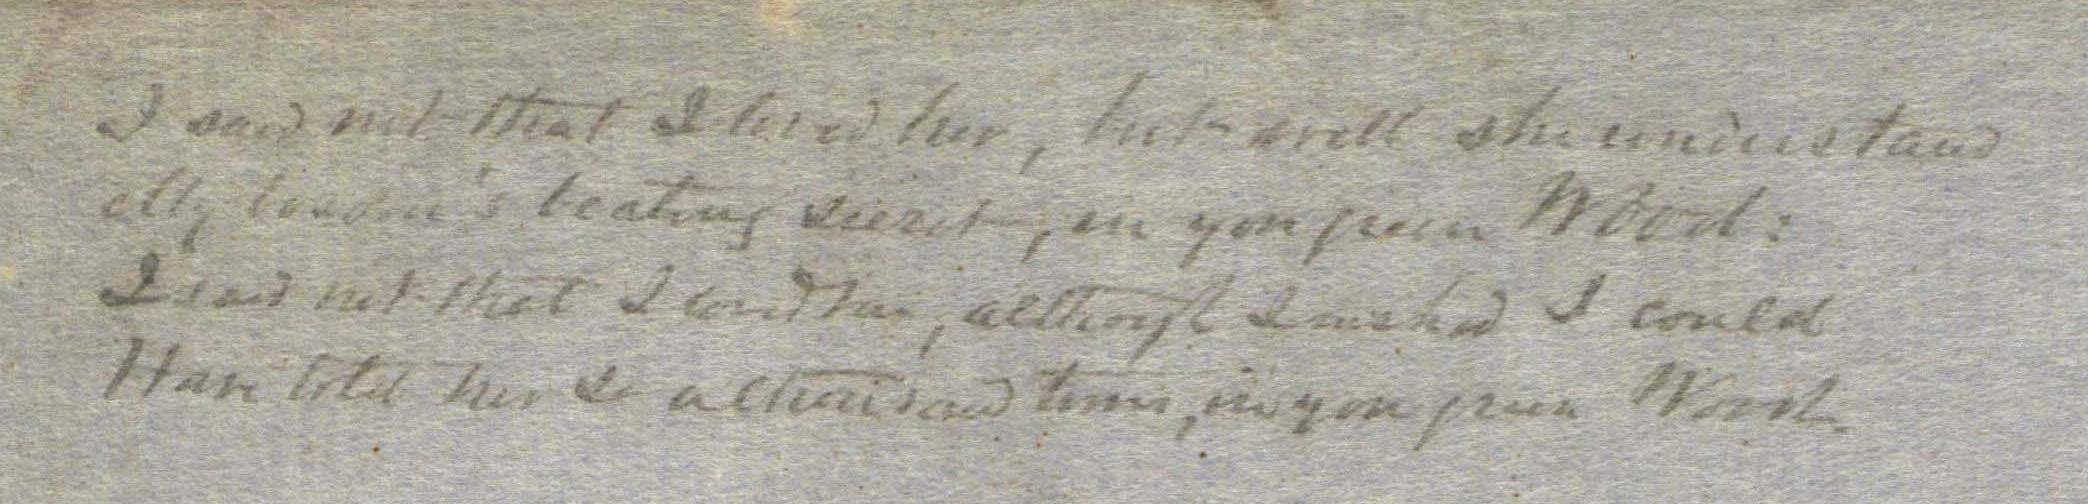 I said not that I loved her, but well she understood
My bosom's beating secret, in yon green Wood:
I said not that I loved her, although I wished I could
Have told her so a thousand times, in yon green Wood.